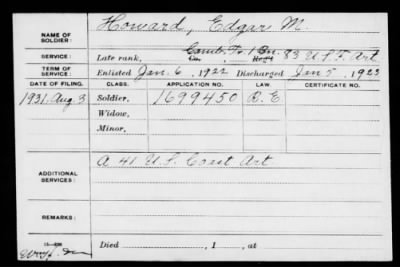 NAME OF SOLDIER: Howard, Edgar M.
SERVICE: Late rank, Comb. Tr. 1 Bn. 83 U.S.F. Art
Co., Reg't
TERM OF SERVICE: Enlisted Jan. 6, 1922 Discharged Jan 5, 1923
DATE OF FILING. CLASS. APPLICATION NO. LAW. CERTIFICATE NO.
1931. Aug 3 Soldier, 1699450 B.E
Widow,
Minor,
ADDITIONAL SERVICES: A 41 U.S. Coast Art
REMARKS:
Died , 1 , at